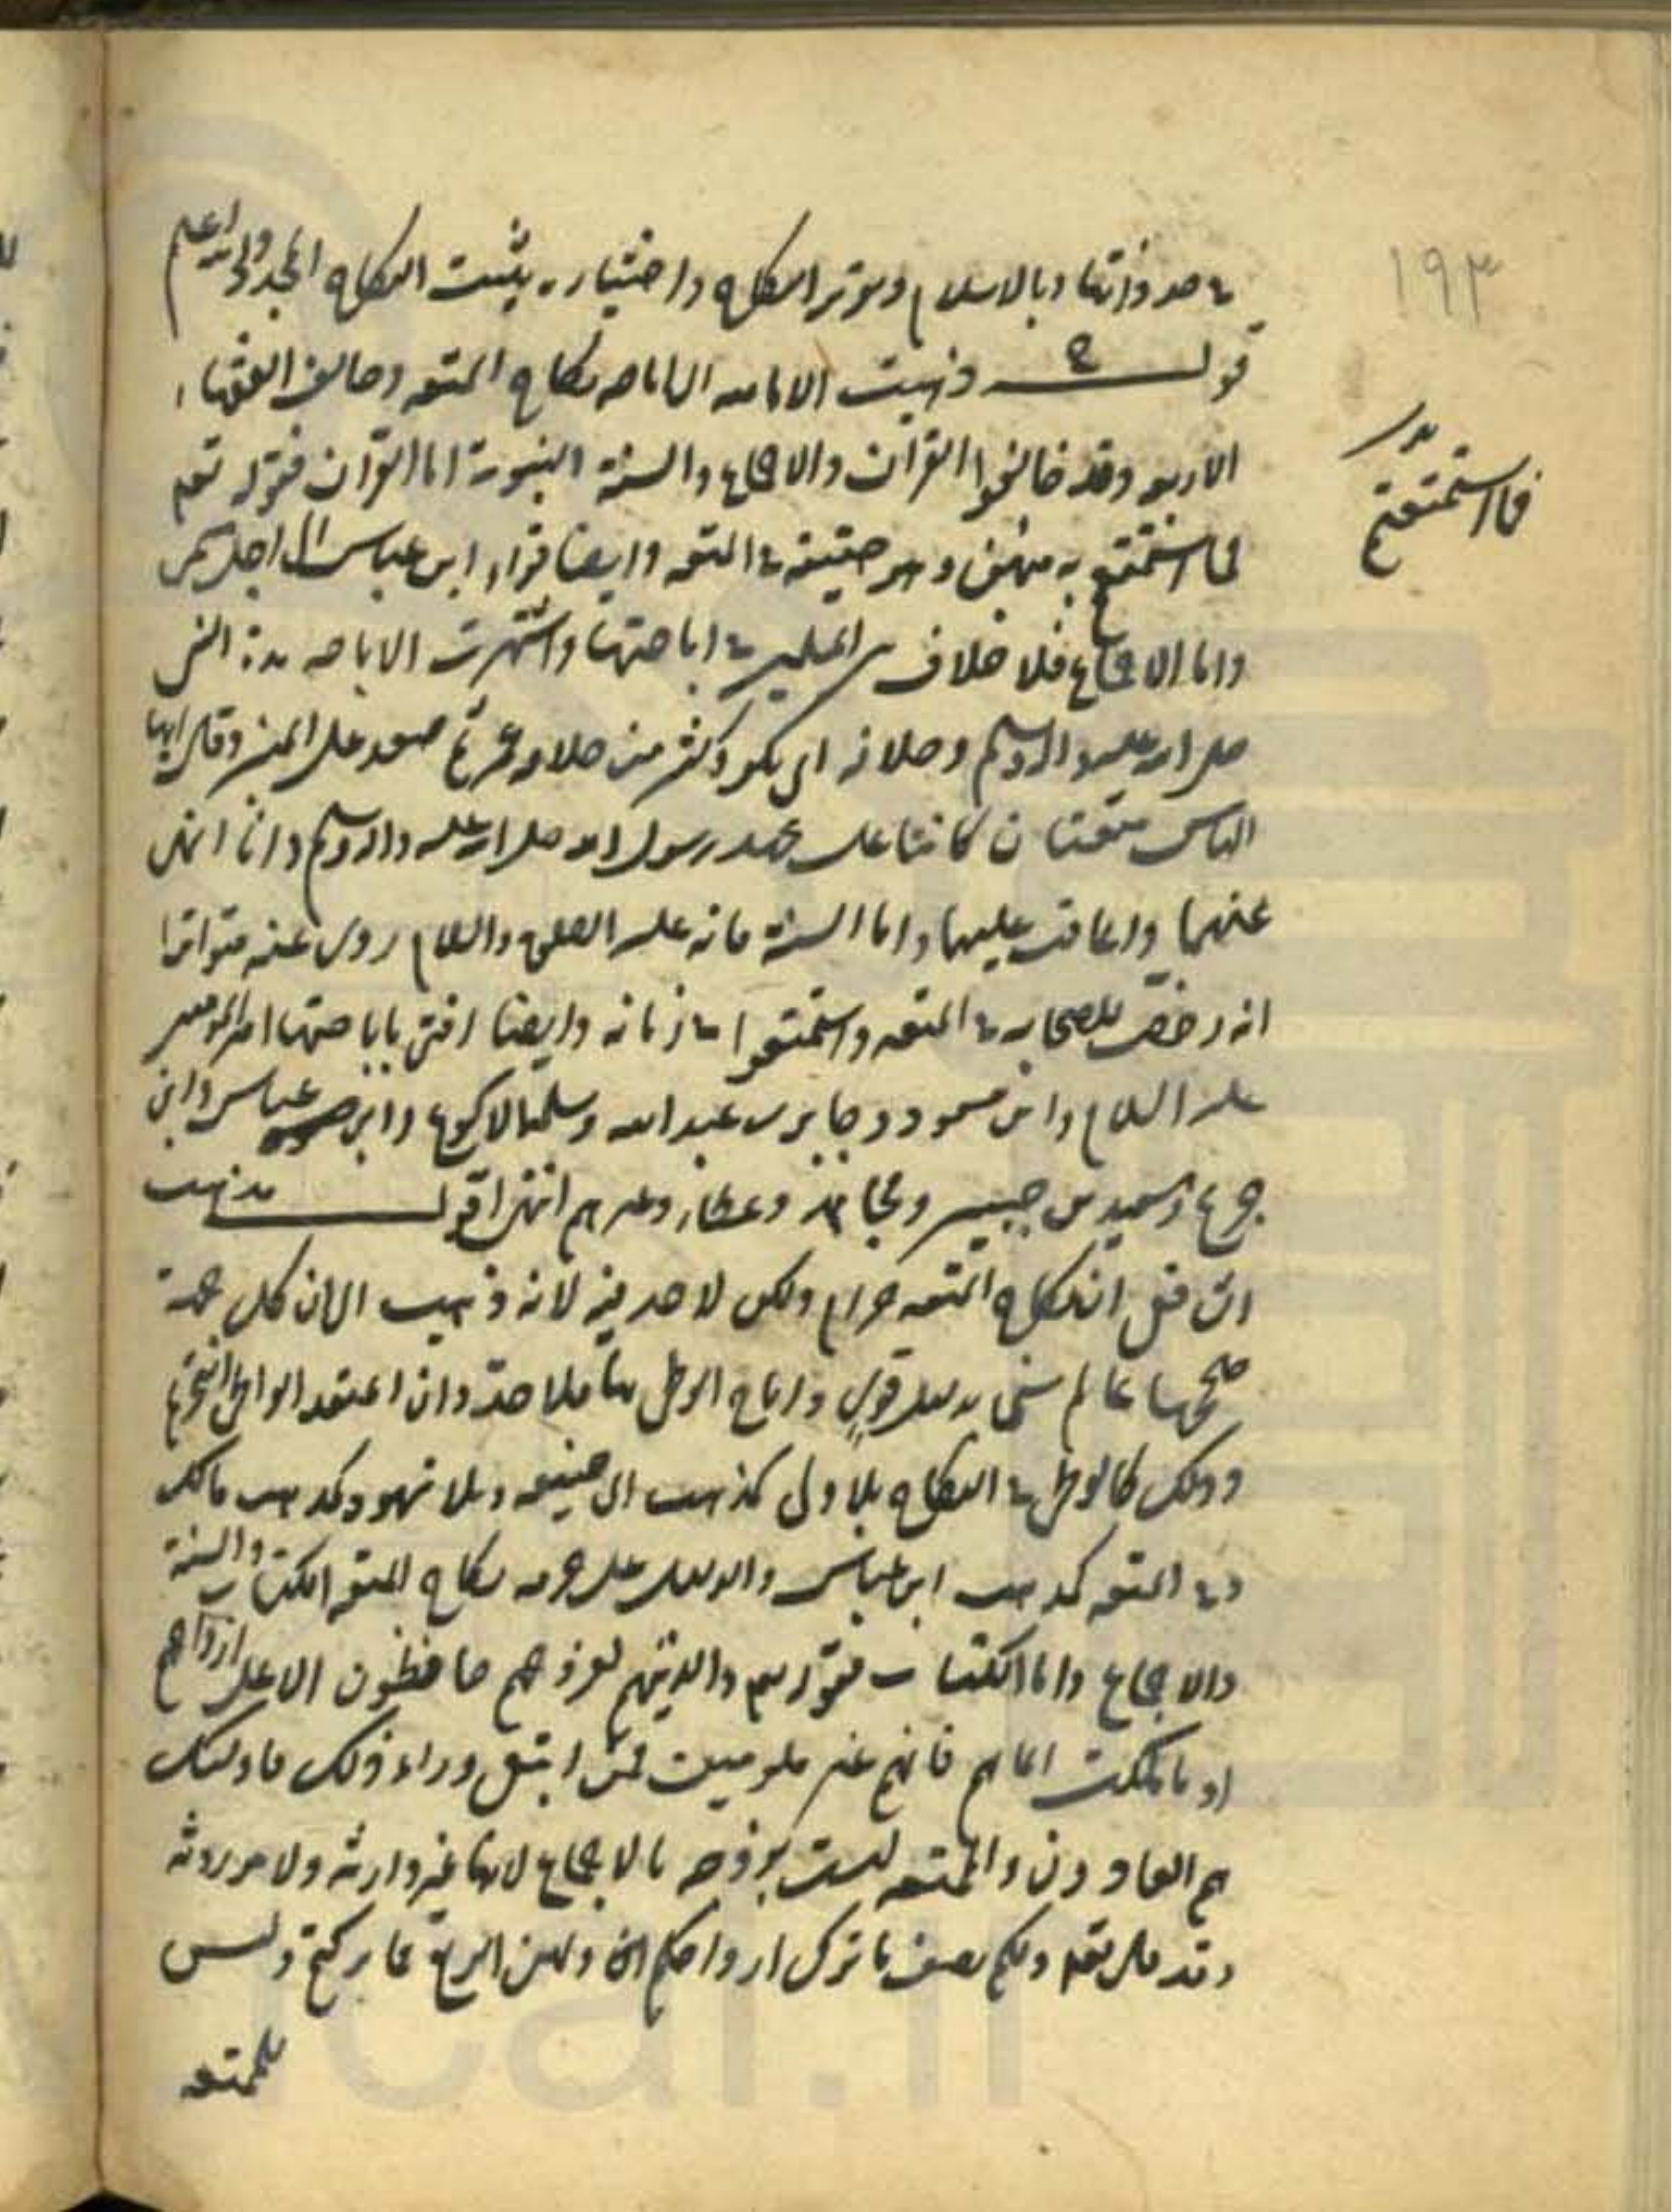 ١٩٣
قوله ذهبت الامامية الى اباحة نكاح المتعة وخالف الفقهاء
الاربعة وقد خالفوا القرآن والاجماع والسنة النبوية اما القرآن فقوله تعالى
فما استمتعتم به منهن وهو حقيقة في المتعة وايضا قراءة ابن عباس الى اجل مسمى
فما استمتعتم
واما الاجماع فلا خلاف بين المسلمين في اباحتها واشتهرت الاباحة مدة النبي
صلى الله عليه وآله وسلم وخلافة ابي بكر واكثر من خلافة عمر ثم صعد على المنبر وقال ايها
الناس متعتان كانتا على عهد رسول الله صلى الله عليه وآله وسلم وانا انهى
عنهما واعاقب عليهما واما السنة فانه عليه الصلوة والسلام روى عنه متواترا
انه رخص للصحابة في المتعة واستمتعوا في زمانه وايضا افتى باباحتها امير المؤمنين
عليه السلام وابن مسعود وجابر بن عبد الله وسلمة الاكوع وابن عباس وابن
جريج وسعيد بن جبير ومجاهد وعطاء وغيرهم انتهى اقول مذهب
الشافعي ان نكاح المتعة حرام ولكن لا حد فيه لانه ذهب الى ان كل جهة
صححها عالم سني بدليل قوي واباح الوطى بها فلا حد وان اعتقد الواطى التحريم
وذلك كالوطى في النكاح بلا ولى كمذهب ابي حنيفة وبلا شهود كمذهب مالك
وفي المتعة كمذهب ابن عباس والدليل على حرمة نكاح المتعة الكتاب والسنة
والاجماع واما الكتاب فقوله تعالى والذينهم لفروجهم حافظون الا على ازواجهم
او ما ملكت ايمانهم فانهم غير ملومين فمن ابتغى وراء ذلك فاولئك
هم العادون والمتعة ليست بزوجة بالاجماع لانها غير وارثة ولا موروثة
وقد قال تعالى ولكم نصف ما ترك ازواجكم ولهن الربع مما تركتم وليس
للمتعة